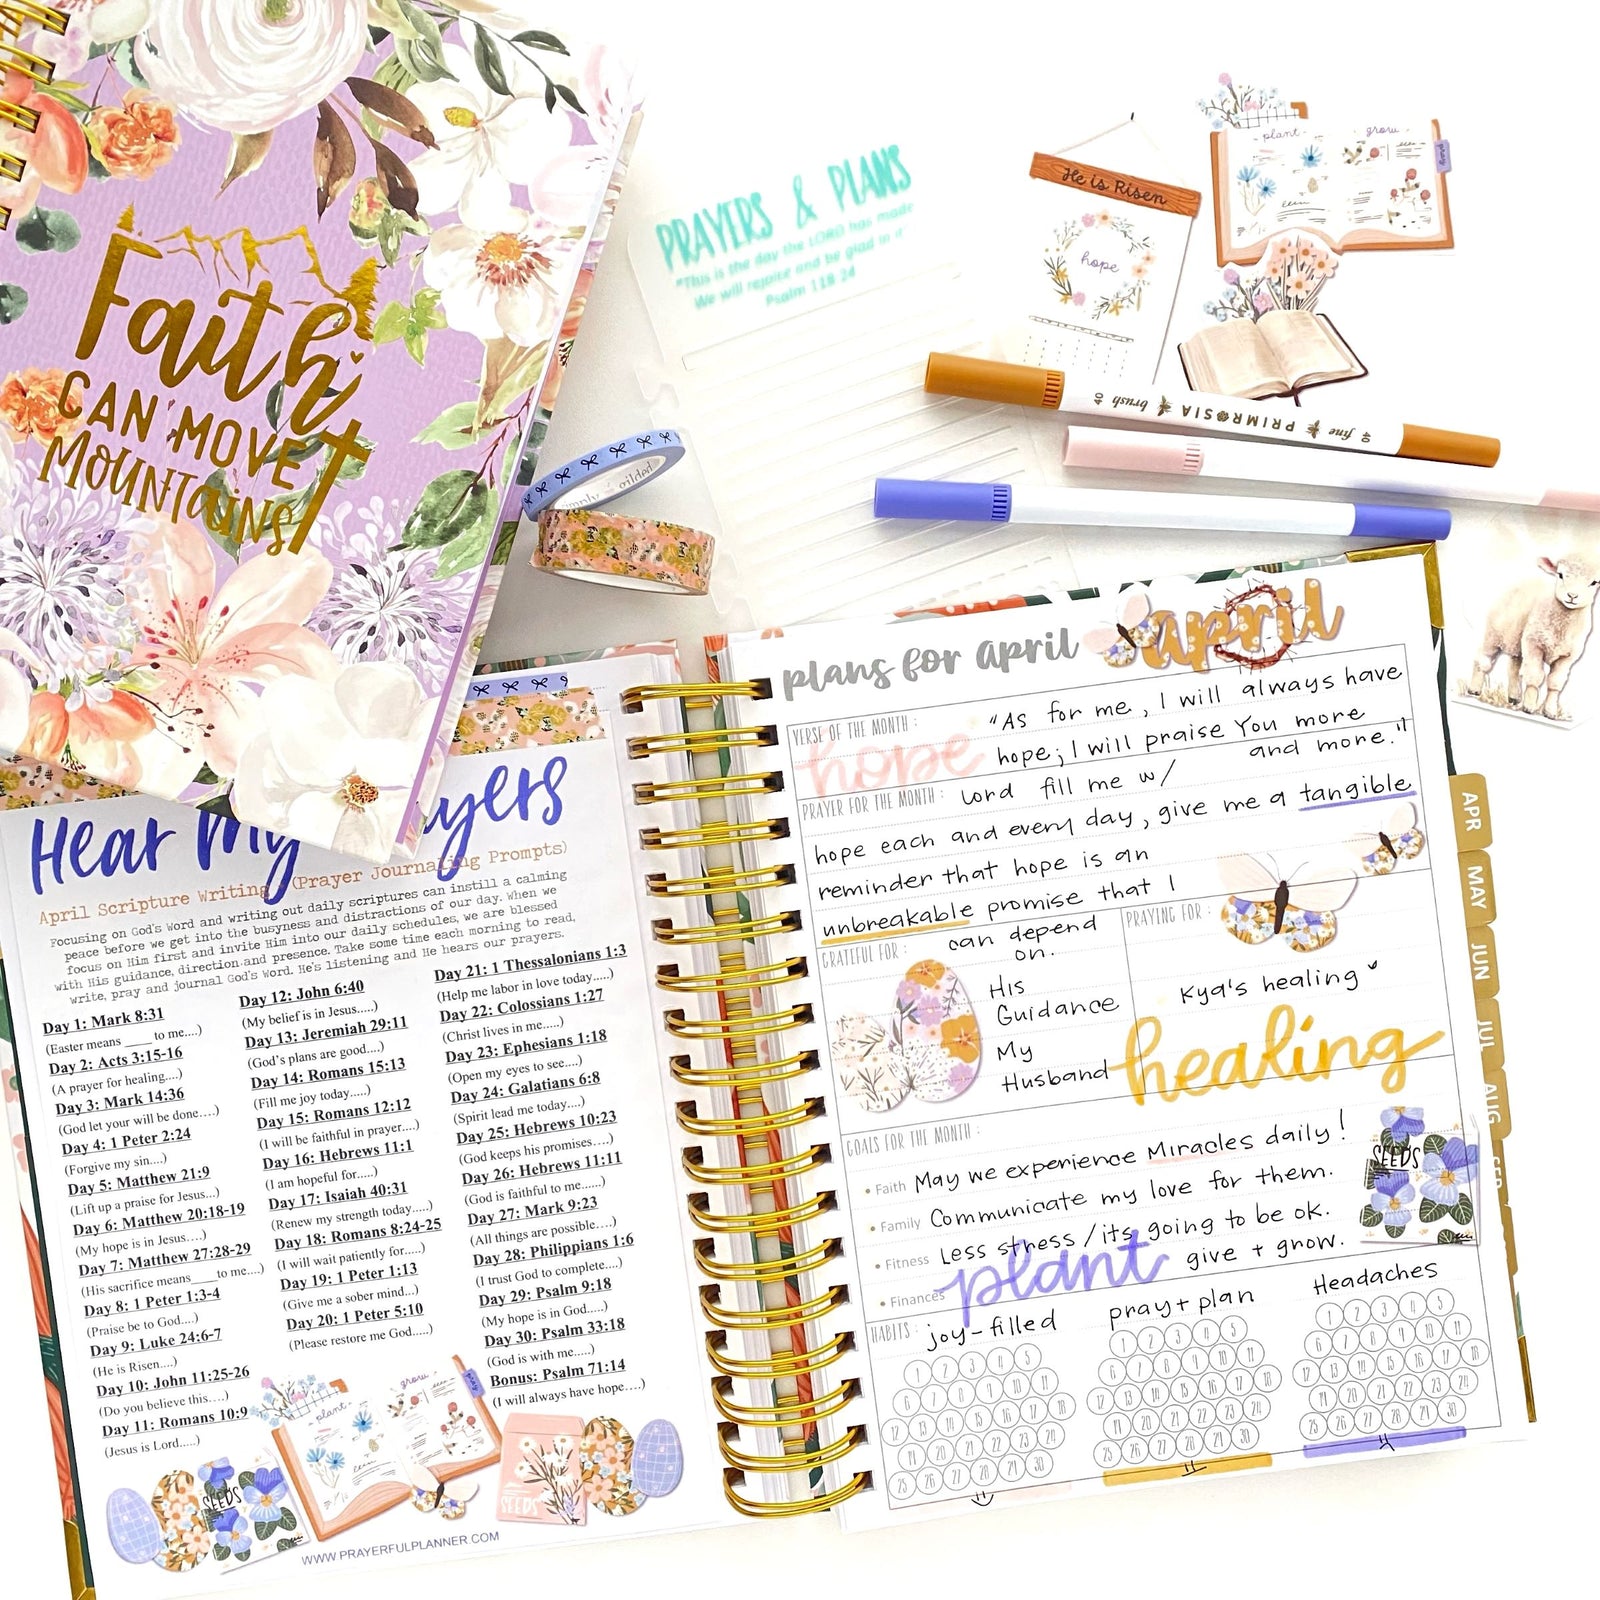 Faith
CAN MOVE
MOUNTAINS
PRAYERS & PLANS
"This is the day the LORD has made
We will rejoice and be glad in it"
Psalm 118:24
He is Risen
hope
plant
grow
pray
brush
PRIMROSIA
fine
Hear My Prayers
April Scripture Writing (Prayer Journaling Prompts)
Focusing on God's Word and writing out daily scriptures can instill a calming
peace before we get into the busyness and distractions of our day. When we
focus on Him first and invite Him into our daily schedules, we are blessed
with His guidance, direction and presence. Take some time each morning to read,
write, pray and journal God's Word. He's listening and He hears our prayers.
Day 1: Mark 8:31
(Easter means ____ to me....)
Day 2: Acts 3:15-16
(A prayer for healing....)
Day 3: Mark 14:36
(God let your will be done....)
Day 4: 1 Peter 2:24
(Forgive my sin....)
Day 5: Matthew 21:9
(Lift up a praise for Jesus...)
Day 6: Matthew 20:18-19
(My hope is in Jesus....)
Day 7: Matthew 27:28-29
(His sacrifice means____to me....)
Day 8: 1 Peter 1:3-4
(Praise be to God....)
Day 9: Luke 24:6-7
(He is Risen....)
Day 10: John 11:25-26
(Do you believe this....)
Day 11: Romans 10:9
(Jesus is Lord.....)
Day 12: John 6:40
(My belief is in Jesus.....)
Day 13: Jeremiah 29:11
(God's plans are good....)
Day 14: Romans 15:13
(Fill me joy today.....)
Day 15: Romans 12:12
(I will be faithful in prayer....)
Day 16: Hebrews 11:1
(I am hopeful for.....)
Day 17: Isaiah 40:31
(Renew my strength today.....)
Day 18: Romans 8:24-25
(I will wait patiently for.....)
Day 19: 1 Peter 1:13
(Give me a sober mind...)
Day 20: 1 Peter 5:10
(Please restore me God.....)
Day 21: 1 Thessalonians 1:3
(Help me labor in love today.....)
Day 22: Colossians 1:27
(Christ lives in me.....)
Day 23: Ephesians 1:18
(Open my eyes to see....)
Day 24: Galatians 6:8
(Spirit lead me today....)
Day 25: Hebrews 10:23
(God keeps his promises....)
Day 26: Hebrews 11:11
(God is faithful to me......)
Day 27: Mark 9:23
(All things are possible....)
Day 28: Philippians 1:6
(I trust God to complete....)
Day 29: Psalm 9:18
(My hope is in God.....)
Day 30: Psalm 33:18
(God is with me.....)
Bonus: Psalm 71:14
(I will always have hope....)
SEEDS
plant
grow
pray
SEEDS
WWW.PRAYERFULPLANNER.COM
plans for april
april
VERSE OF THE MONTH :
hope
"As for me, I will always have
hope; I will praise You more
and more."
PRAYER FOR THE MONTH : Lord fill me w/
hope each and every day, give me a tangible
reminder that hope is an
unbreakable promise that I
can depend
on.
GRATEFUL FOR :
His
Guidance
My
Husband
PRAYING FOR :
Kya's healing
healing
GOALS FOR THE MONTH :
• Faith May we experience Miracles daily!
• Family Communicate my love for them.
• Fitness Less stress / its going to be ok.
• Finances plant give + grow.
SEEDS
HABITS : joy-filled
pray + plan
Headaches
1 2 3 4 5
6 7 8 9 10 11
12 13 14 15 16 17 18
19 20 21 22 23 24
25 26 27 28 29 30
1 2 3 4 5
6 7 8 9 10 11
12 13 14 15 16 17 18
19 20 21 22 23 24
25 26 27 28 29 30
1 2 3 4 5
6 7 8 9 10 11
12 13 14 15 16 17 18
19 20 21 22 23 24
25 26 27 28 29 30
APR
MAY
JUN
JUL
AUG
SEP